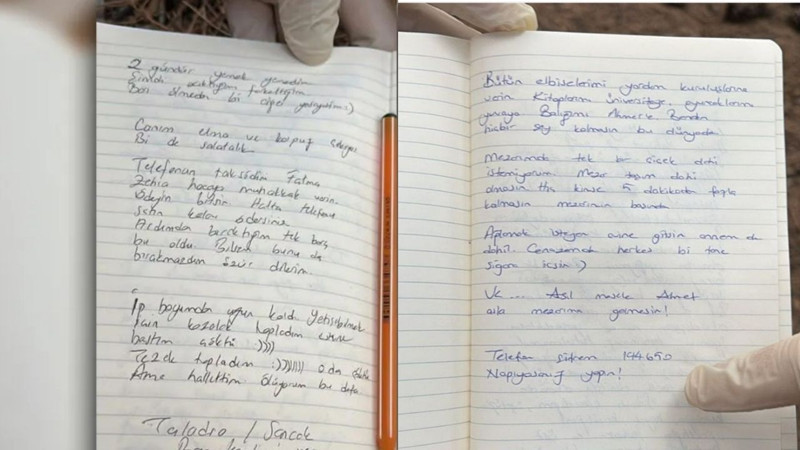 2 gündür yemek yemedim
bir algel yeniyorum :)
Canım elma ve karpuz çekiyor
Bi de salatalık
Telefonun taksidini Fatma
Zehra hocaya muhakkak verin.
Ödeyin bitsin. Hatta telefonu
satın kalanı ödersiniz
Ardımdan bıraktığım tek borç
bu oldu. Bilsem bunu da
bırakmazdım özür dilerim.
İp boyumdan uzun kaldı yetişebilmek
için kozalak topladım üstüne
bastım :))))
Tezek topladım :)) o da
Ama hallettim ölüyorum bu defa
Taladro / Sancak
Bütün elbiselerimi yardım kuruluşlarına
verin Kitaplarım üniversiteye, oyuncaklarım
yuvaya Balığımı Ahmet'e Benden
hiçbir şey kalmasın bu dünyada
Mezarımda tek bir çiçek dahi
istemiyorum. Mezar taşım dahi
olmasın kimse 5 dakikadan fazla
kalmasın mezarımın başında
Ağlamak isteyen evine gitsin annem de
dahil. Cenazemde herkes bi tane
sigara içsin :)
Ve ... Asıl mesele Ahmet
asla mezarıma gelmesin!
Telefon şifrem 144650
Napıyosanız yapın!